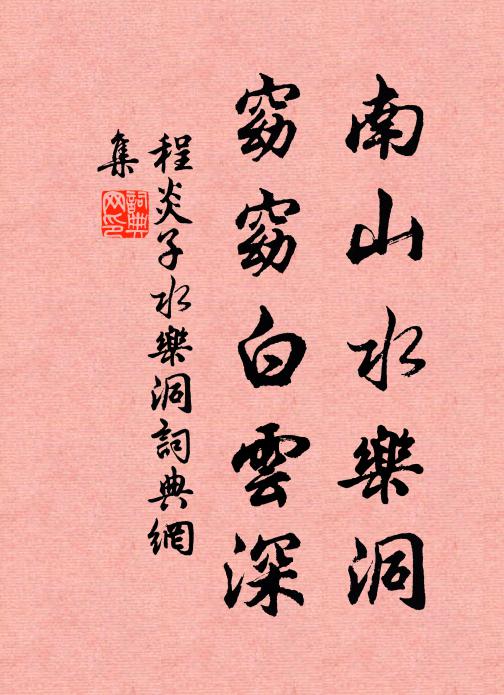 南山水樂洞
窈窈白雲深
程炎子水樂洞詞典網
集
詞典網印